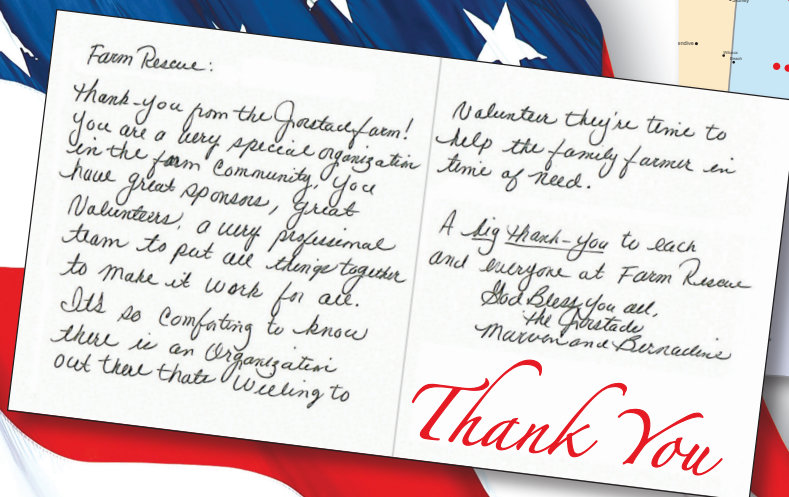 Farm Rescue:
Thank-you from the Jorstad farm!
You are a very special organization
in the farm Community. You
have great sponsors, great
Volunteers, a very professional
team to put all things together
to make it work for all.
It's so comforting to know
there is an Organization
out there thats willing to
Volunteer they're time to
help the family farmer in
time of need.
A big thank-you to each
and everyone at Farm Rescue
God Bless you all,
the Jorstads
Marvin and Bernadine
Thank You